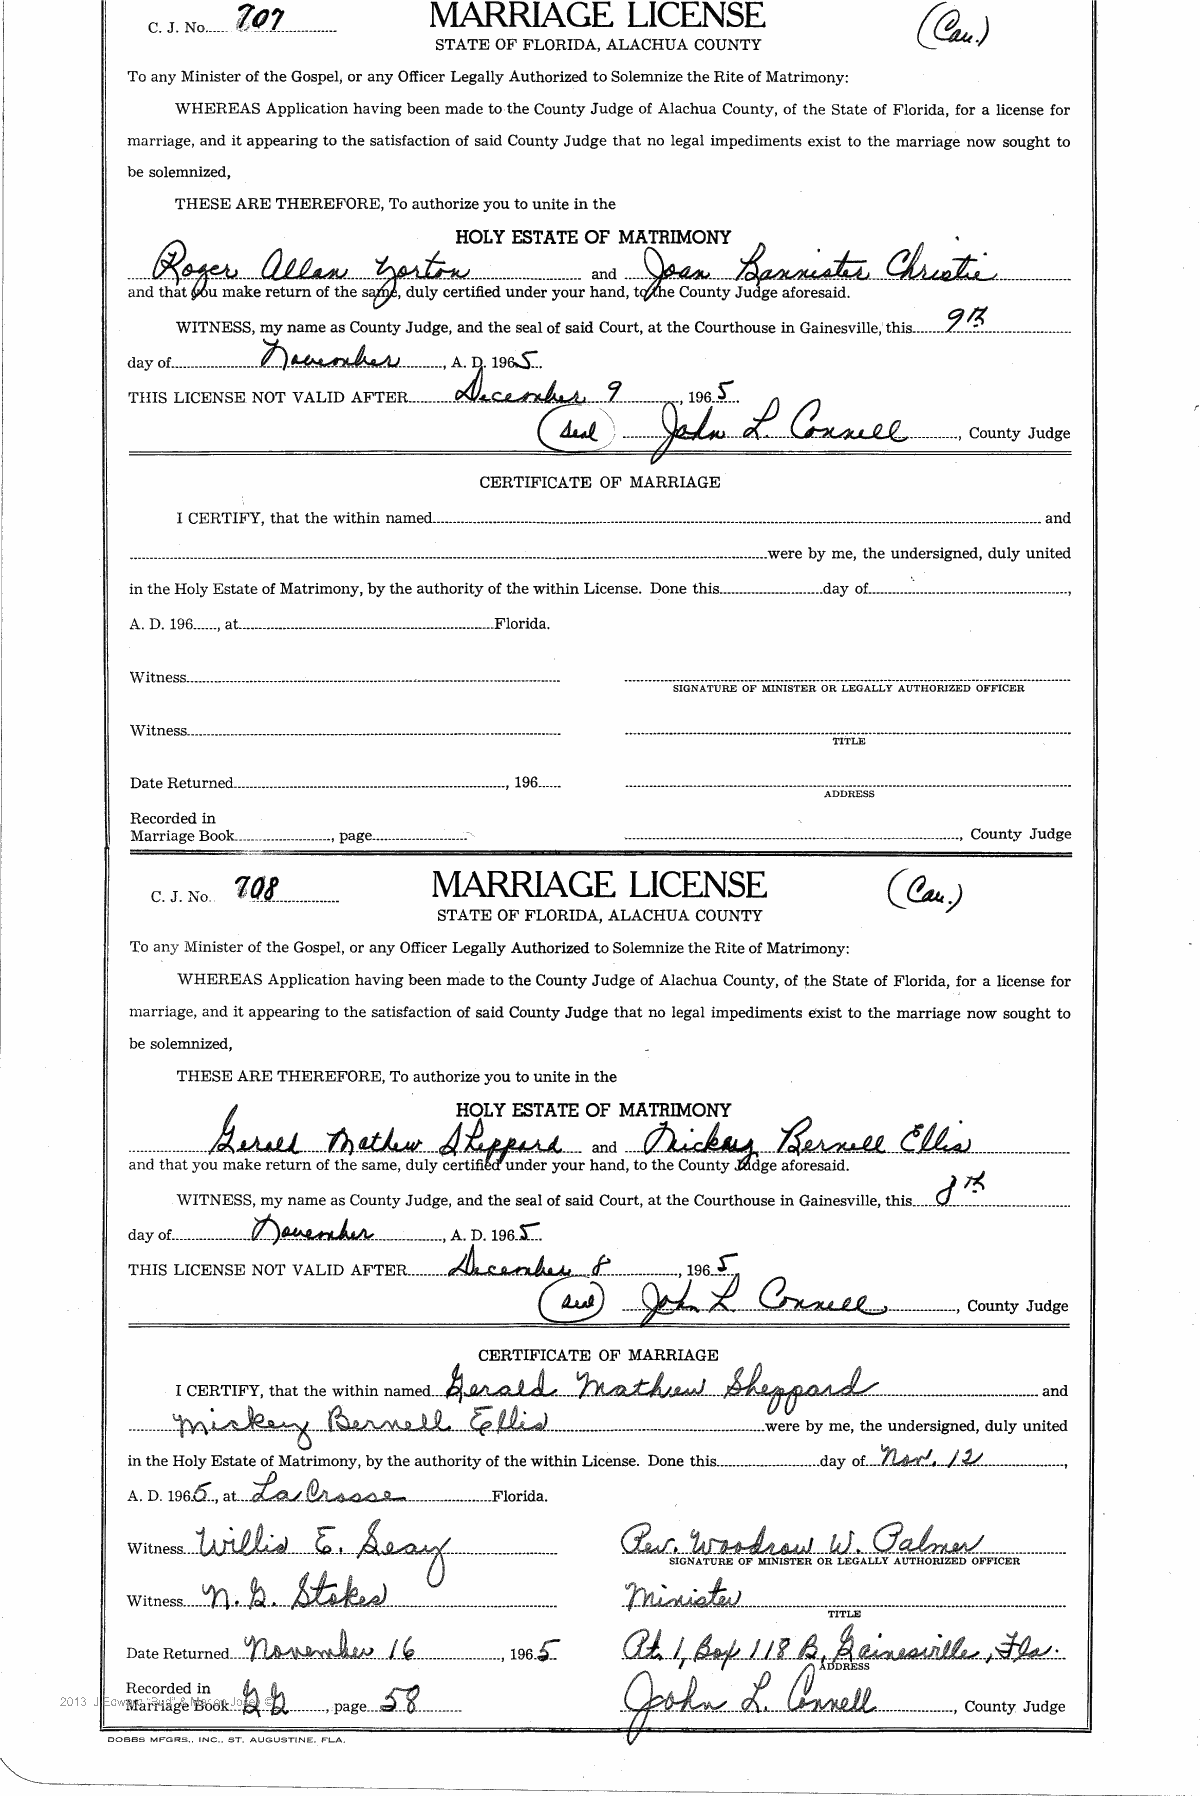 C. J. No. 707 MARRIAGE LICENSE (Cau.)
STATE OF FLORIDA, ALACHUA COUNTY
To any Minister of the Gospel, or any Officer Legally Authorized to Solemnize the Rite of Matrimony:
WHEREAS Application having been made to the County Judge of Alachua County, of the State of Florida, for a license for
marriage, and it appearing to the satisfaction of said County Judge that no legal impediments exist to the marriage now sought to
be solemnized,
THESE ARE THEREFORE, To authorize you to unite in the
HOLY ESTATE OF MATRIMONY
Roger Allan Yorton and Joan Bannister Christie
and that you make return of the same, duly certified under your hand, to the County Judge aforesaid.
WITNESS, my name as County Judge, and the seal of said Court, at the Courthouse in Gainesville, this 9th
day of November, A. D. 1965
THIS LICENSE NOT VALID AFTER December 9, 1965
(Seal) John L. Connell, County Judge
CERTIFICATE OF MARRIAGE
I CERTIFY, that the within named and
were by me, the undersigned, duly united
in the Holy Estate of Matrimony, by the authority of the within License. Done this day of ,
A. D. 196 , at Florida.
Witness
SIGNATURE OF MINISTER OR LEGALLY AUTHORIZED OFFICER
Witness
TITLE
Date Returned , 196
ADDRESS
Recorded in
Marriage Book , page , County Judge
C. J. No. 708 MARRIAGE LICENSE (Cau.)
STATE OF FLORIDA, ALACHUA COUNTY
To any Minister of the Gospel, or any Officer Legally Authorized to Solemnize the Rite of Matrimony:
WHEREAS Application having been made to the County Judge of Alachua County, of the State of Florida, for a license for
marriage, and it appearing to the satisfaction of said County Judge that no legal impediments exist to the marriage now sought to
be solemnized,
THESE ARE THEREFORE, To authorize you to unite in the
HOLY ESTATE OF MATRIMONY
Gerald Mathew Sheppard and Mickey Bernell Ellis
and that you make return of the same, duly certified under your hand, to the County Judge aforesaid.
WITNESS, my name as County Judge, and the seal of said Court, at the Courthouse in Gainesville, this 8th
day of November, A. D. 1965
THIS LICENSE NOT VALID AFTER December 8, 1965
(Seal) John L Connell, County Judge
CERTIFICATE OF MARRIAGE
I CERTIFY, that the within named Gerald Mathew Sheppard and
Mickey Bernell Ellis were by me, the undersigned, duly united
in the Holy Estate of Matrimony, by the authority of the within License. Done this day of Nov. 12,
A. D. 1965, at La Crosse Florida.
Witness Willis E. Seay Rev. Woodrow W. Palmer
SIGNATURE OF MINISTER OR LEGALLY AUTHORIZED OFFICER
Witness N. G. Stokes Minister
TITLE
Date Returned November 16, 1965 Rt. 1, Box 118 B, Gainesville, Fla.
ADDRESS
Recorded in
Marriage Book GG, page 58 John L. Connell, County Judge
DOBBS MFGRS., INC., ST. AUGUSTINE, FLA.